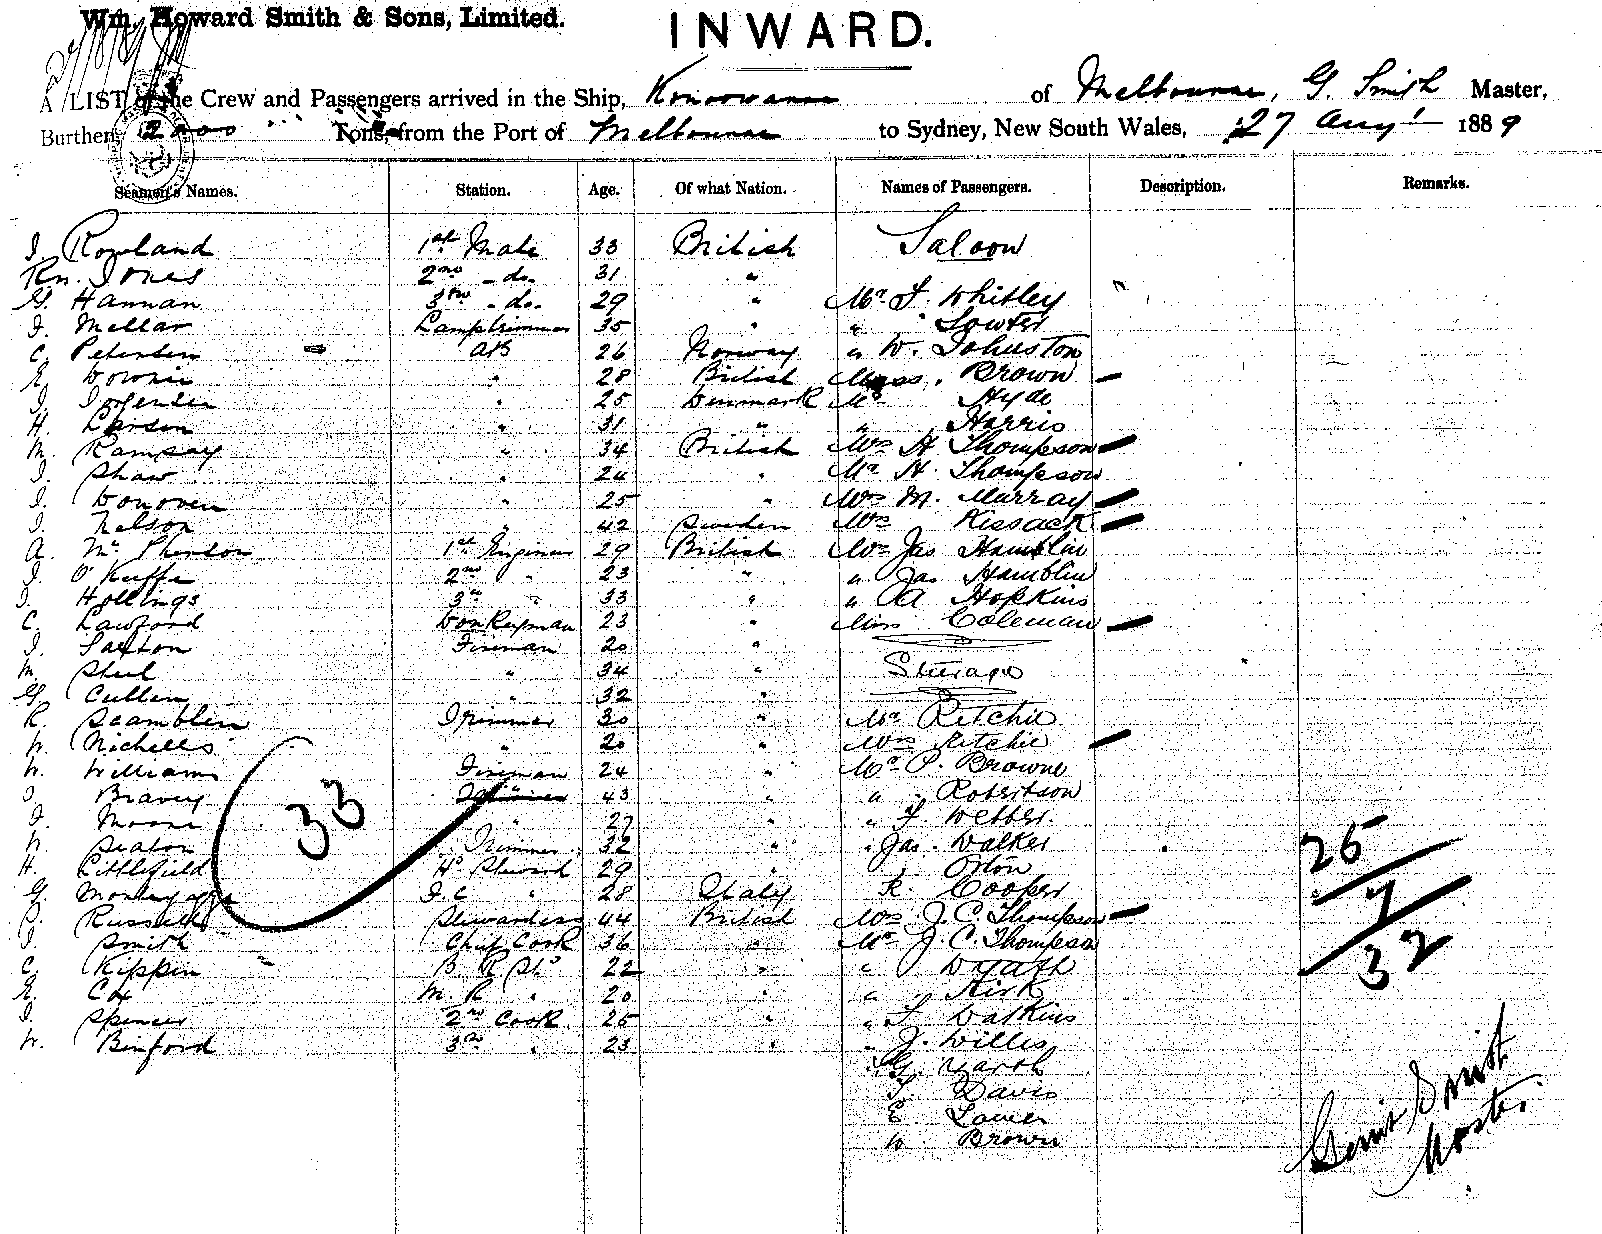 Wm. Howard Smith & Sons, Limited.
INWARD.
A LIST of the Crew and Passengers arrived in the Ship, Konoowarra of Melbourne, G. Smith Master,
Burthen, 2000 Tons, from the Port of Melbourne to Sydney, New South Wales, 27 Augt 1889
Seamen's Names. Station. Age. Of what Nation. Names of Passengers. Description. Remarks.
J. Rowland 1st Mate 33 British Saloon
Rn. Jones 2nd - do. 31 "
G. Hannan 3rd - do. 29 " Mr. F. Whitley
J. Mellar Lamptrimmer 35 " " Lowter
C. Petersen AB 26 Norway " W. Johnston
E. Downie " 28 British Miss. Brown
J. " 25 Denmark Mr Hyde
H. Larsen " 31 " " Harris
M. Ramsay " 34 British Mrs H Thompson
J. Shaw " 24 " Mr H. Thompson
J. Donoven " 25 " Mrs M. Murray
J. Nelson " 42 Sweden Mrs Kissack
A. Mc Pherson 1st Engineer 29 British Mr Jas Hamblin
J. O'Keeffe 2nd " 23 " " Jas Hamblin
J. Hollings 3rd " 33 " " A Hopkins
C. Lawford Donkeyman 23 " Miss Coleman
J. Saxton Fireman 20 "
M. Steel " 34 " Steerage
G. Cullen " 32 "
R. Scamblen Trimmer 30 " Mr Ritchie
W. Nicholls " 20 " Mrs Ritchie
W. Williams Fireman 24 " Mr P. Browne
Bravey 43 " " Robertson
J. Moore " 27 " F. Webber.
W. Seaton Trimmer 32 " " Jas. Walker
H. Littlefield Hd Steward 29 " " Orton
G. F.C. " 28 Italy R. Cooper
Russell Stewardess 44 British Mrs J. C. Thompson
J. Smith Chief Cook 36 " Mr J. C. Thompson
C. Kippin B. R Std 22 " "
E. Cox M. R " 20 " " Kirk
J. Spencer 2nd Cook 25 " " F Watkins
W. Binford 3rd " 23 " " J. Willis
G.
F. Davis
E. Lower
W Brown
33
25
7
32
Smith
Master